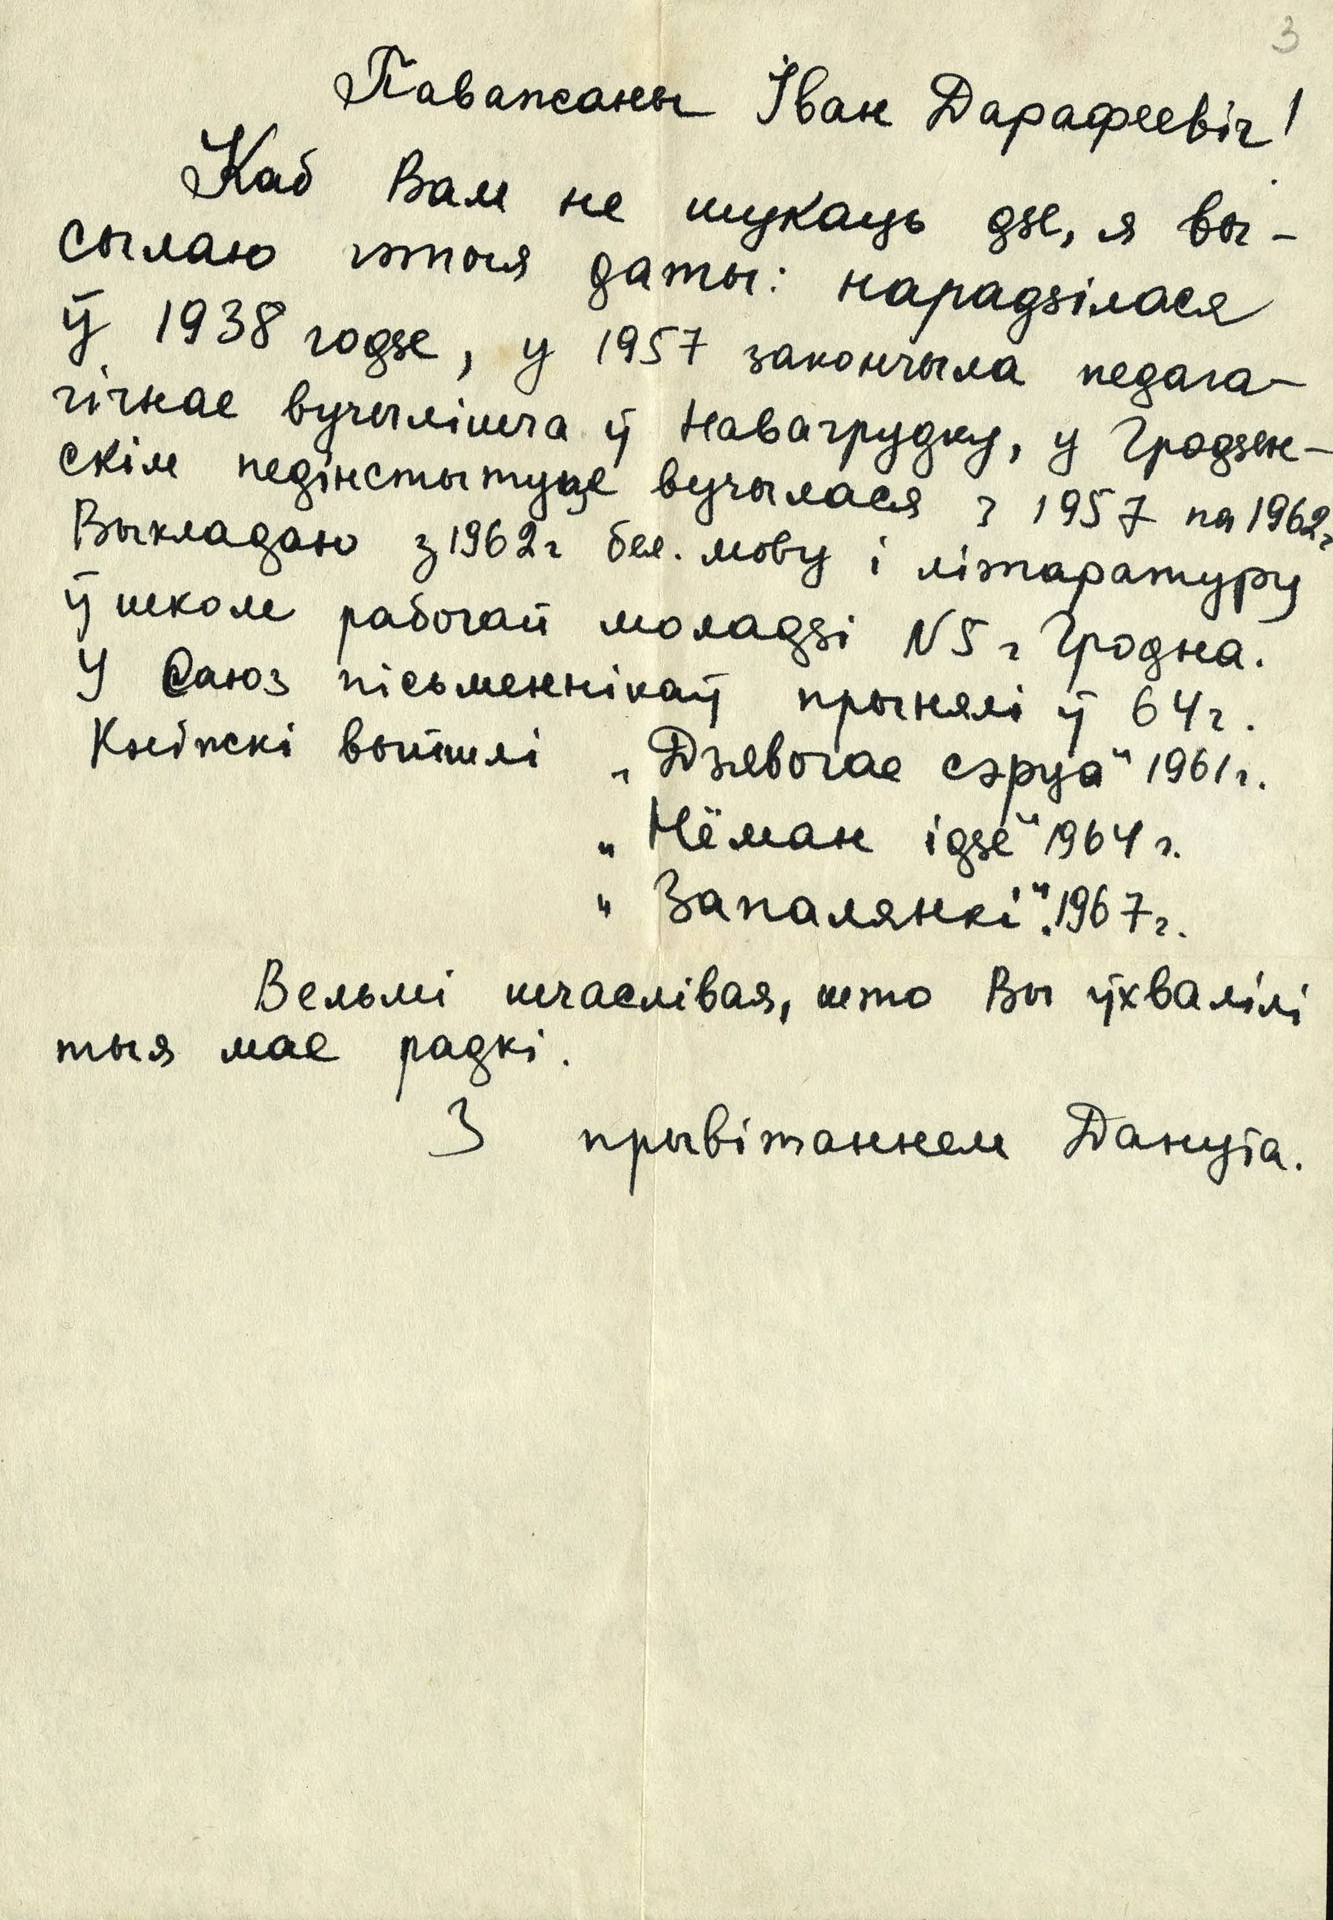 3
Паважаны Іван Дарафеевіч!
Каб Вам не шукаць дзе, я вы-
сылаю гэтыя даты: нарадзілася
ў 1938 годзе, у 1957 закончыла педага-
гічнае вучылішча ў Навагрудку, у Гродзен-
скім педінстытуце вучылася з 1957 па 1962г
Выкладаю з 1962г бел. мову і літаратуру
ў школе рабочай моладзі N5 г Гродна.
У Саюз пісьменнікаў прынялі ў 64г.
Кніжкі выйшлі „Дзявочае сэрца" 1961г.
„Нёман ідзе" 1964г.
„Запалянкі". 1967г.
Вельмі шчаслівая, што Вы ўхвалілі
тыя мае радкі.
З прывітаннем Данута.